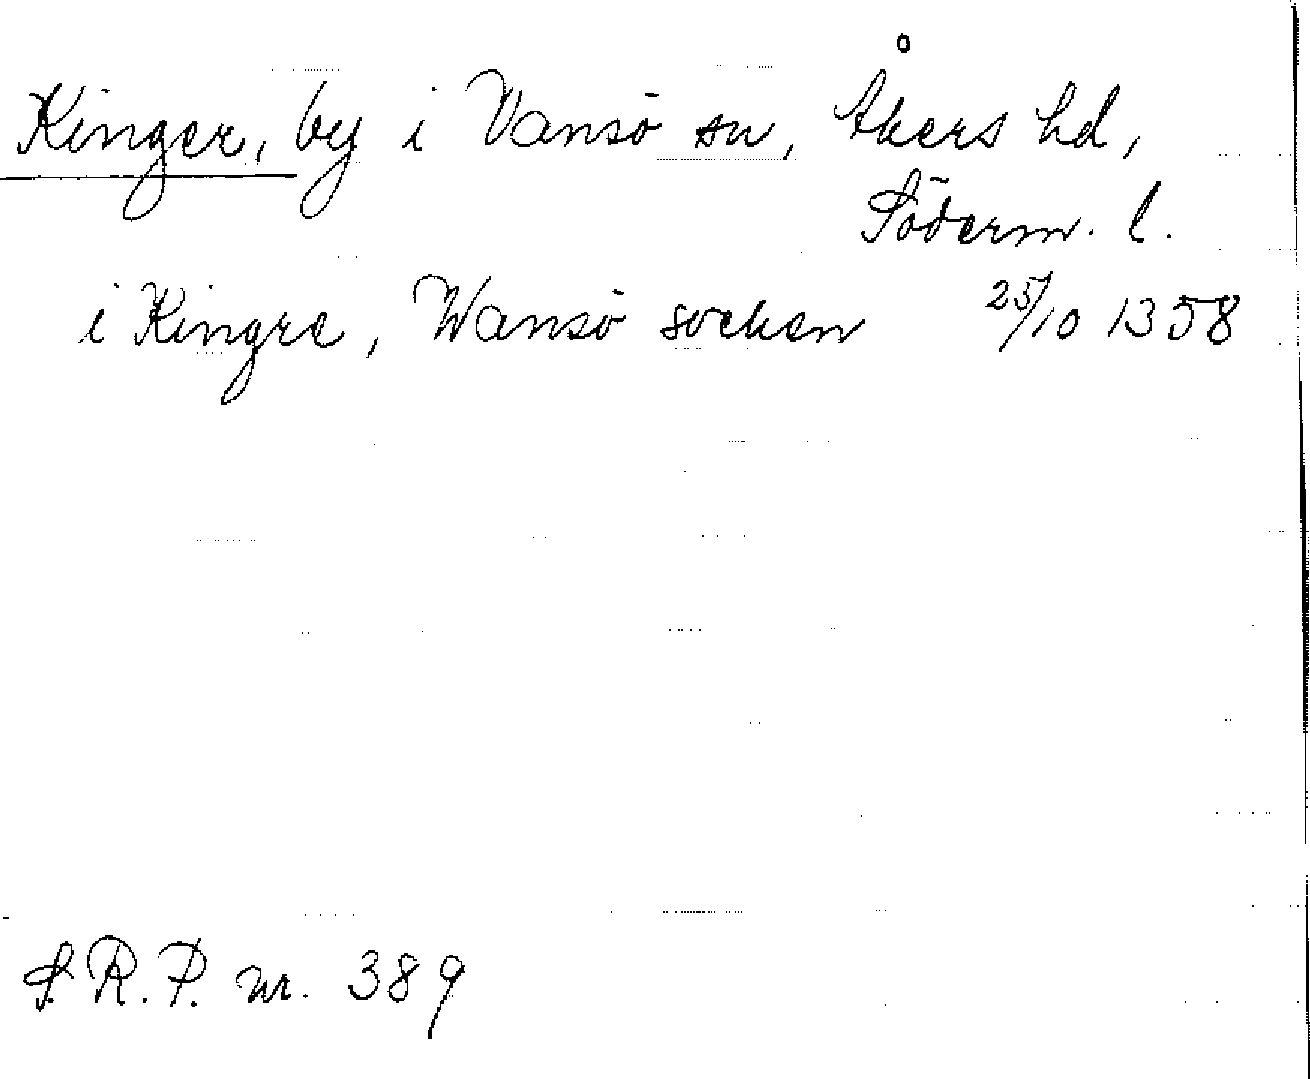 Kinger, by i Vansö sn, Åkers hd,
Söderm. l.
i Kingre, Wansö socken 25/10 1358
S.R.P. nr. 389